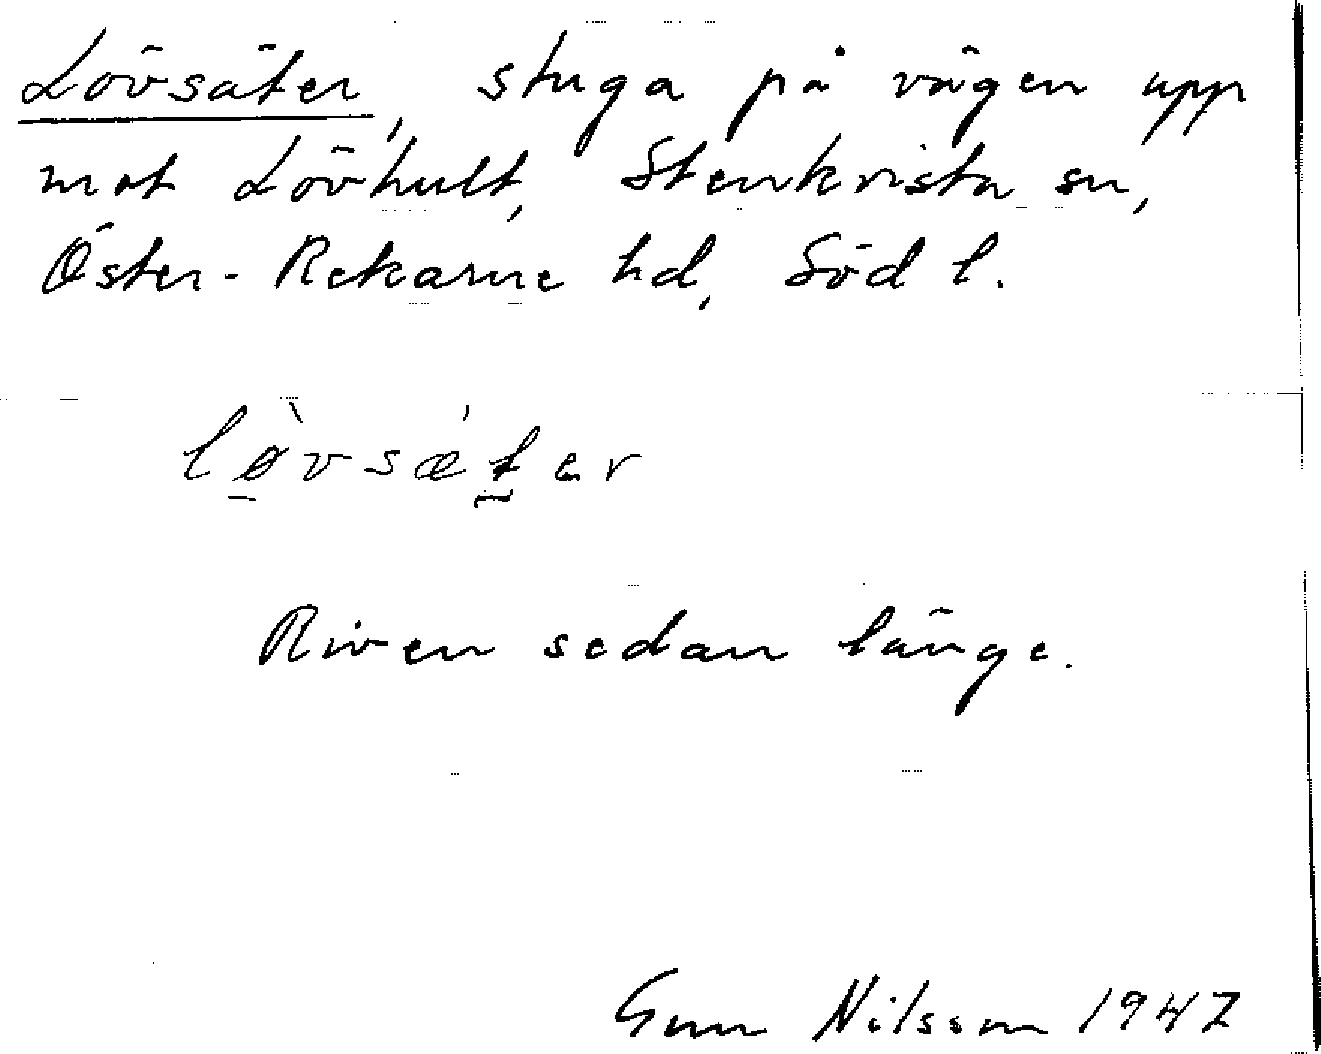 Lövsäter, stuga på vägen upp
mot Lövhult, Stenkvista sn,
Öster-Rekarne hd, Söd l.
lø̱̀vsæ̍t̰er
Riven sedan länge.
Gun Nilsson 1947